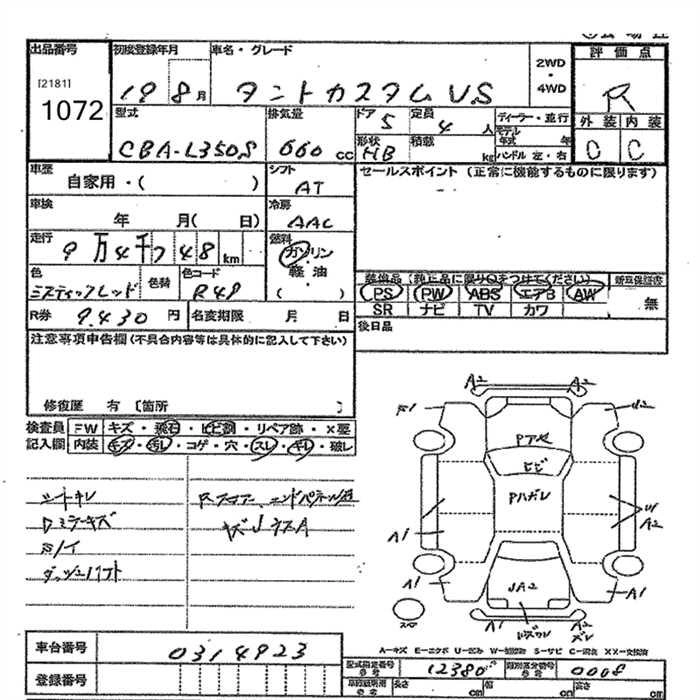 出品番号 初度登録年月 車名・グレード 2WD・4WD 評価点
[2181]
1072
19 8月 タントカスタムVS R
型式 排気量 ドア 定員 ディーラー・並行 外装 内装
CBA-L350S 660cc 5 4人 モデル年式 年 C C
形状 積載
HB kg ハンドル 左・右
車歴 シフト セールスポイント(正常に機能するものに限ります)
自家用・( ) AT
車検 冷房
年 月( 日) AAC
走行 燃料
9万4千748km ガソリン
軽油
( )
色 色替 色コード
ミスティックレッド R49
装備品(純正品に限り○をつけてください) 新車保証書
PS PW ABS エアB AW 無
SR ナビ TV カワ
R券 9.430円 名変期限 月 日
後日品
注意事項申告欄(不具合内容等は具体的に記入して下さい)
修復歴 有 〔箇所 〕
検査員 FW キズ・飛石・ヒビ割・リペア跡・X要
記入欄 内装 キズ・汚レ・コゲ・穴・スレ・キレ・破レ
シートキレ
ドミラーキズ
ダッシュハフト
A2 A2
A1
Pアセ
ヒビ
Pハガレ
W
A2
A1
A1 A1
JA2
A1 A2
スレ
A-キズ E-エクボ U-凹み W-補修跡 S-サビ C-腐食 XX-交換済
車台番号 0314923
型式指定番号 12380 類別区分番号 0008
登録番号
長さ cm 幅 cm 高さ cm